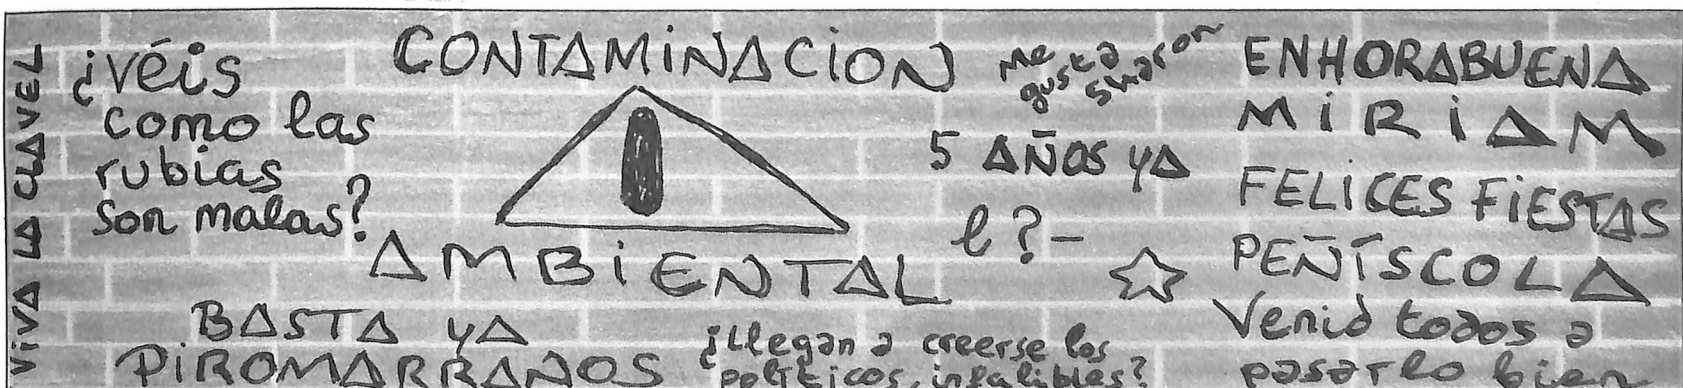 VIVA LA CLAVEL
¿véis
como las
rubias
son malas?
CONTAMINACION
AMBIENTAL
BASTA YA
PIROMARRANOS
me
gusta
5 AÑOS YA
l?-
¿Llegan a creerse los
políticos, infalibles?
ENHORABUENA
MIRIAM
FELICES FIESTAS
PEÑÍSCOLA
Venid todos a
pasarlo bien